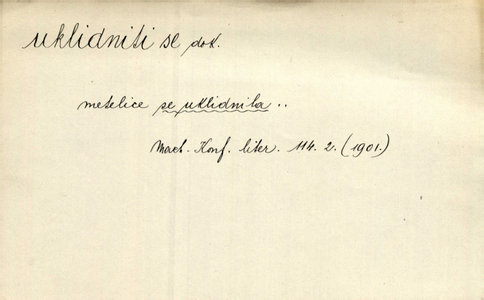 uklidniti se dok.
metelice se uklidnila ..
Mach. Konf. liter. 114. 2. (1901.)